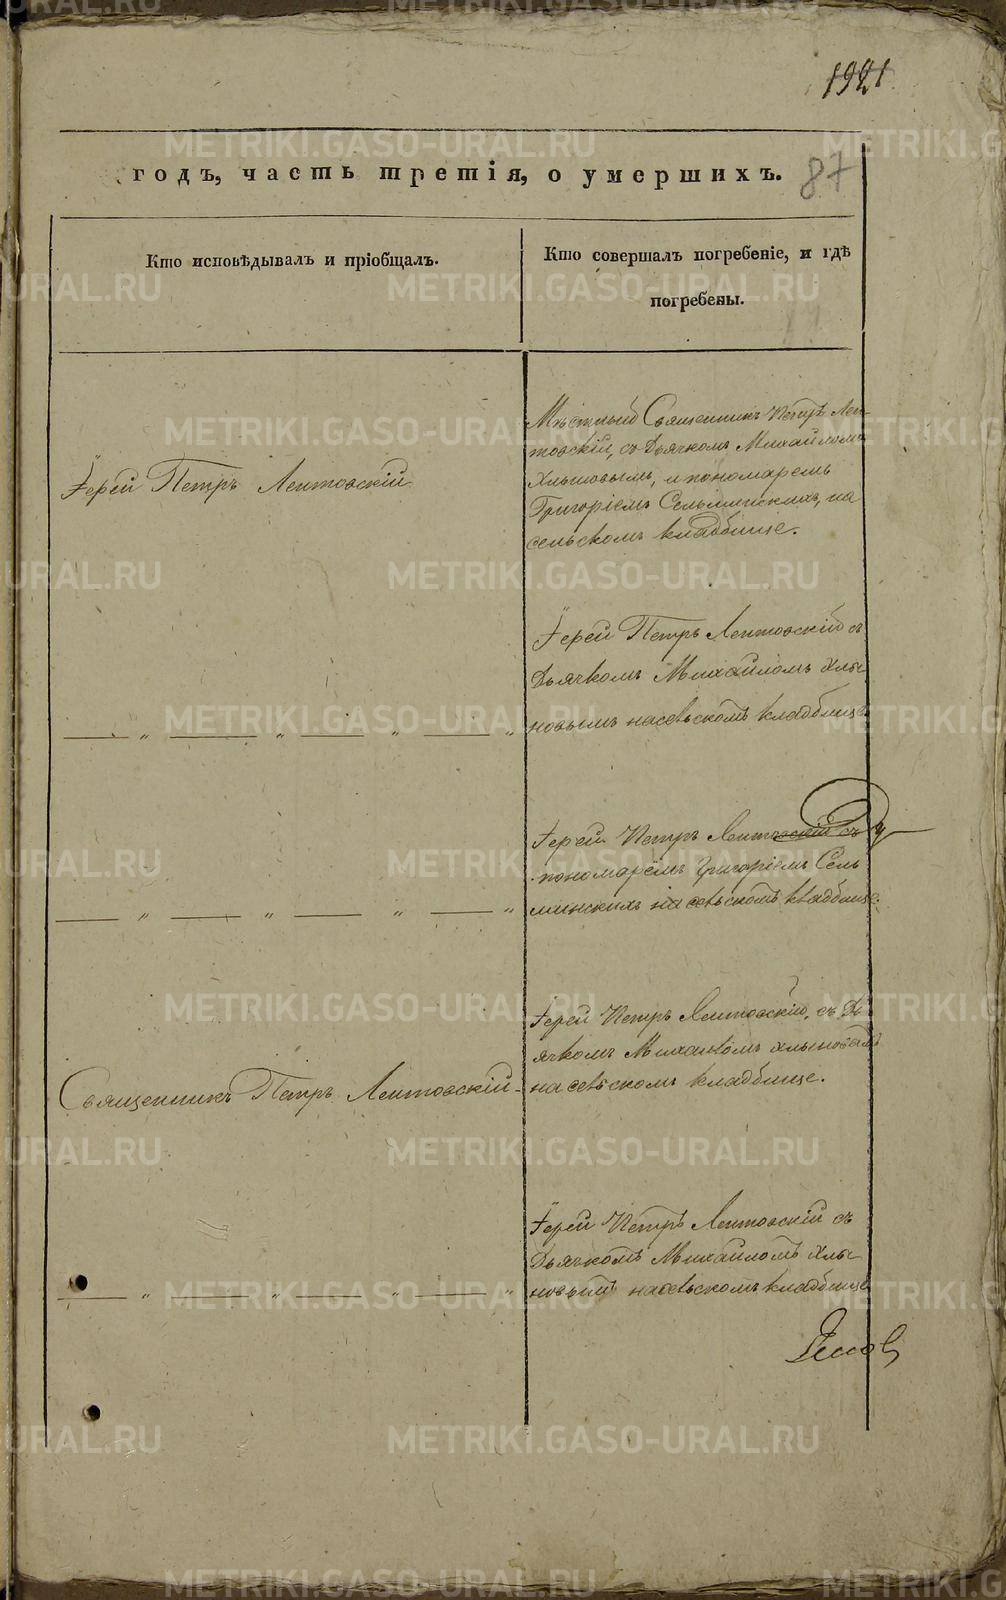 1921
годъ, часть третія, о умершихъ.
87
Кто исповѣдывалъ и пріобщалъ.
Кто совершалъ погребеніе, и гдѣ
погребены.
Мѣстный Священникъ Петръ Леп-
товскій, съ Дьячкомъ Михайломъ
Хлыновымъ, и пономаремъ
Григоріемъ Сельминскихъ, на
сельскомъ кладбище.
Іерей Петръ Лептовскій
Іерей Петръ Лептовскій съ
Дьячкомъ Михайломъ Хлы-
новымъ на сельскомъ кладбище
— „ — „ — „ — „
Іерей Петръ Лептовскій съ
пономарёмъ Григоріемъ Сель
минскихъ на сельскомъ кладбище.
— „ — „ — „ — „
Іерей Петръ Лептовскій, съ Дь-
ячкомъ Михаиломъ Хлыновымъ
на сельскомъ кладбище.
Священникъ Петръ Лептовскій
Іерей Петръ Лептовскій съ
Дьячкомъ Михайломъ Хлы-
новымъ на сельскомъ кладбище
— „ — „ — „ — „
METRIKI.GASO-URAL.RU